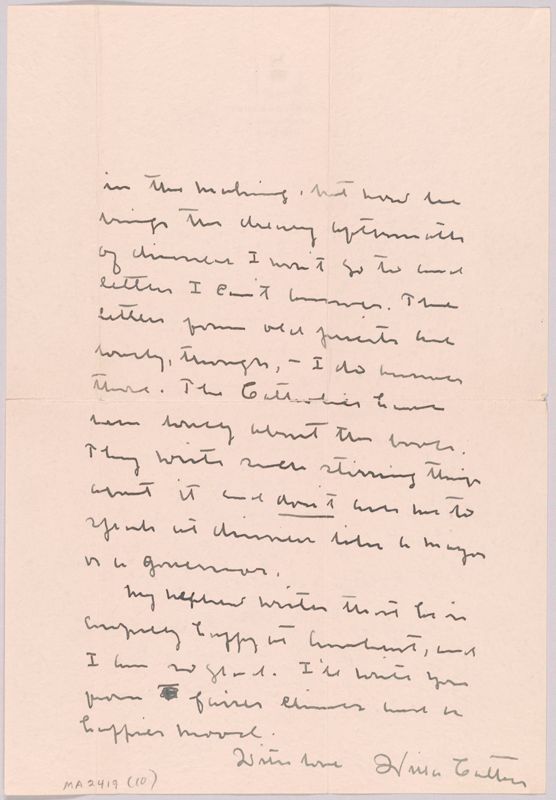 in the making, but now he
brings the dreary aftermath
of dinners I won't go to and
letters I can't answer. The
letters from old priests are
lovely, though, - I do answer
those. The Catholics have
been lovely about this book.
They write such stirring things
about it and don't ask me to
speak at dinners like a mayor
or a governor.
My nephew writes that he is
hugely happy at Amherst, and
I am so glad. I'll write you
from fairer climes and a
happier mood.
With love Willa Cather
MA 2419 (10)